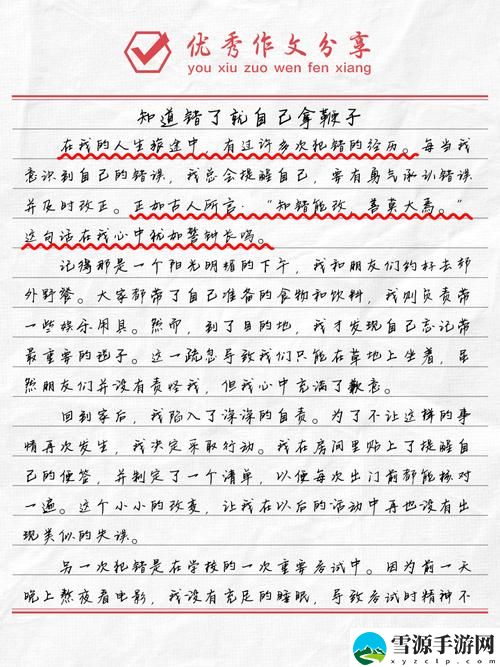 优秀作文分享
you xiu zuo wen fen xiang
知道错了就自己拿鞭子
在我的人生旅途中，有过许多次犯错的经历。每当我
意识到自己的错误，我总会提醒自己，要有勇气承认错误
并及时改正。正如古人所言：“知错能改，善莫大焉。”
这句话在我心中犹如警钟长鸣。
记得那是一个阳光明媚的下午，我和朋友们约好去郊
外野餐。大家都带了自己准备的食物和饮料，我则负责带
一些娱乐用具。然而，到了目的地，我才发现自己忘记带
最重要的毯子。这一疏忽导致我们只能在草地上坐着，虽
然朋友们并没有责怪我，但我心中充满了歉意。
回到家后，我陷入了深深的自责。为了不让这样的事
情再次发生，我决定采取行动。我在房间里贴上了提醒自
己的便签，并制定了一个清单，以便每次出门前都能核对
一遍。这个小小的改变，让我在以后的活动中再也没有出
现类似的失误。
另一次犯错是在学校的一次重要考试中。因为前一天
晚上熬夜看电影，我没有充足的睡眠，导致考试时精神不
雪源手游网
www.xyzclp.com